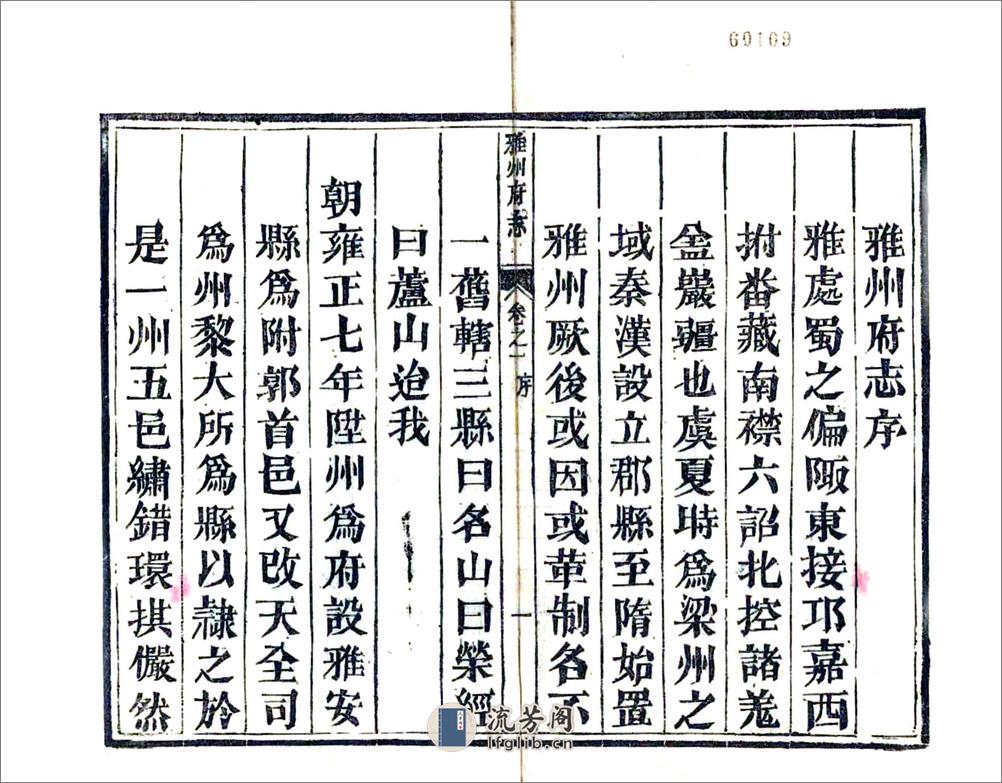 60109
雅州府志序
雅處蜀之偏陬東接邛嘉西
拊番藏南襟六詔北控諸羗
金巖疆也虞夏時爲梁州之
域秦漢設立郡縣至隋始置
雅州厥後或因或革制名不
雅州府志 卷之一 序 一
一舊轄三縣曰名山曰榮經
曰蘆山迨我
朝雍正七年陞州爲府設雅安
縣爲附郭首邑又改天全司
爲州黎大所爲縣以隸之於
是一州五邑繡錯環拱儼然
流芳阁
lfglib.cn